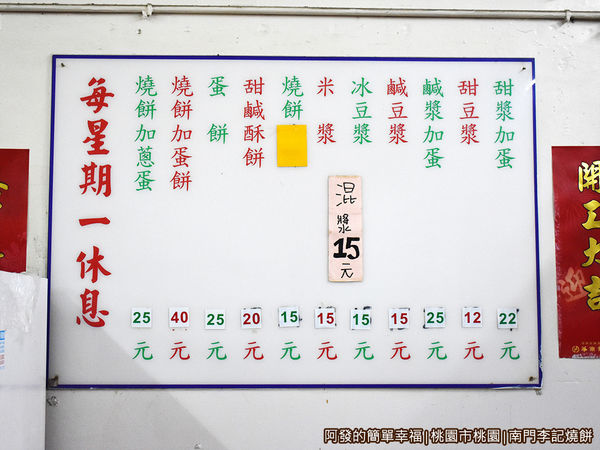 甜漿加蛋 22 元
甜豆漿 12 元
鹹漿加蛋 25 元
鹹豆漿 15 元
冰豆漿 15 元
米漿 15 元
燒餅 15 元
甜鹹酥餅 20 元
蛋餅 25 元
燒餅加蛋餅 40 元
燒餅加蔥蛋 25 元
每星期一休息
混漿 15 元
開工大吉
阿發的簡單幸福|桃園市桃園|南門李記燒餅